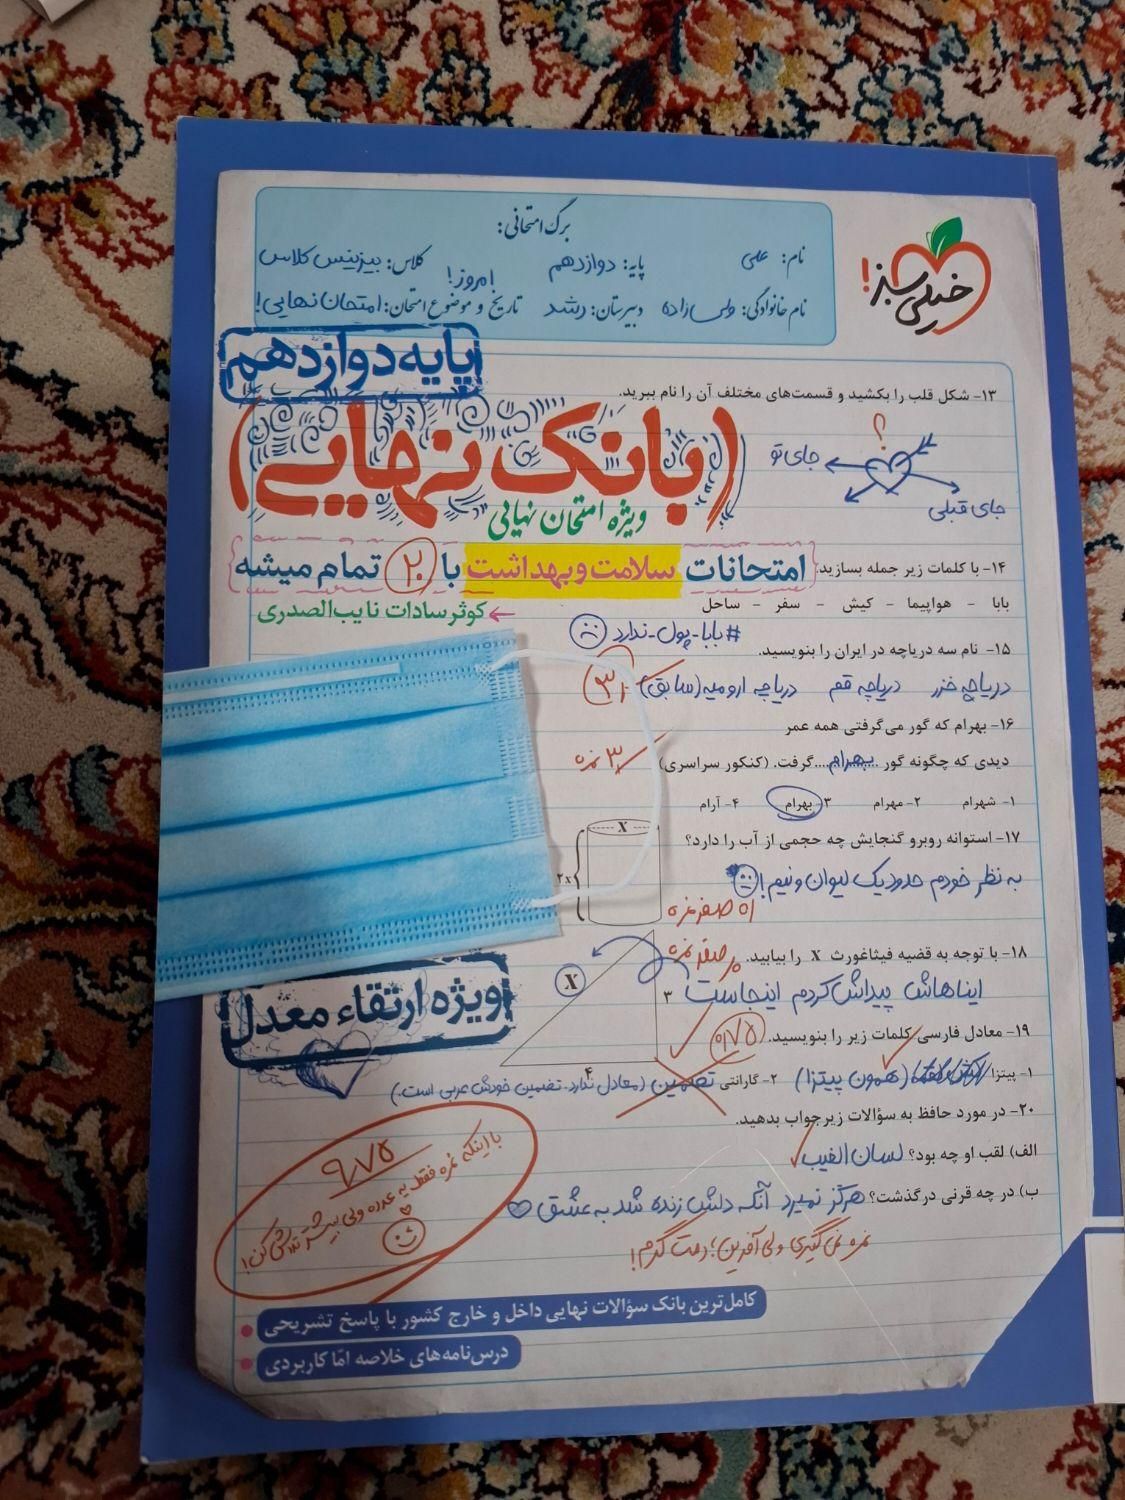 خیلی سبز!
برگ امتحانی:
نام: علی
پایه: دوازدهم
کلاس: بیزینس کلاس
نام خانوادگی: ولی‌زاده
دبیرستان: رشد
امروز!
تاریخ و موضوع امتحان: امتحان نهایی!
پایه دوازدهم
۱۳- شکل قلب را بکشید و قسمت‌های مختلف آن را نام ببرید.
(بانک نهایی)
؟
جای تو
جای قبلی
ویژه امتحان نهایی
۱۴- با کلمات زیر جمله بسازید:
امتحانات سلامت و بهداشت با ۲۰ تمام میشه
بابا - هواپیما - کیش - سفر - ساحل
کوثر سادات نایب‌الصدری
#بابا-پول-ندارد
۱۵- نام سه دریاچه در ایران را بنویسید.
دریاچه خزر دریاچه قم دریاچه ارومیه (سابق)
۱۶- بهرام که گور می‌گرفتی همه عمر
دیدی که چگونه گور ....بهرام.... گرفت. (کنکور سراسری)
۳ نمره
۱- شهرام ۲- مهرام ۳- بهرام ۴- آرام
۱۷- استوانه روبرو گنجایش چه حجمی از آب را دارد؟
X
۲x
به نظر خودم حدود یک لیوان و نیم!
صفر نمره
۱۸- با توجه به قضیه فیثاغورث X را بیابید.
صفر نمره
X
۳
۴
ایناهاش پیداش کردم اینجاست
ویژه ارتقاء معدل
۱۹- معادل فارسی کلمات زیر را بنویسید.
۰/۷۵
۱- پیتزا (همون پیتزا) ۲- گارانتی تضمین (معادل ندارد. تضمین خودش عربی است.)
۲۰- در مورد حافظ به سؤالات زیر جواب بدهید.
الف) لقب او چه بود؟ لسان الغیب
ب) در چه قرنی درگذشت؟ هرگز نمیرد آنکه دلش زنده شد به عشق
نمره نمی‌گیری ولی آفرین؛ دمت گرم!
۹/۷۵
با اینکه نمره فقط یه عدده ولی بیشتر تلاش کن!
کامل‌ترین بانک سؤالات نهایی داخل و خارج کشور با پاسخ تشریحی
درس‌نامه‌های خلاصه امّا کاربردی